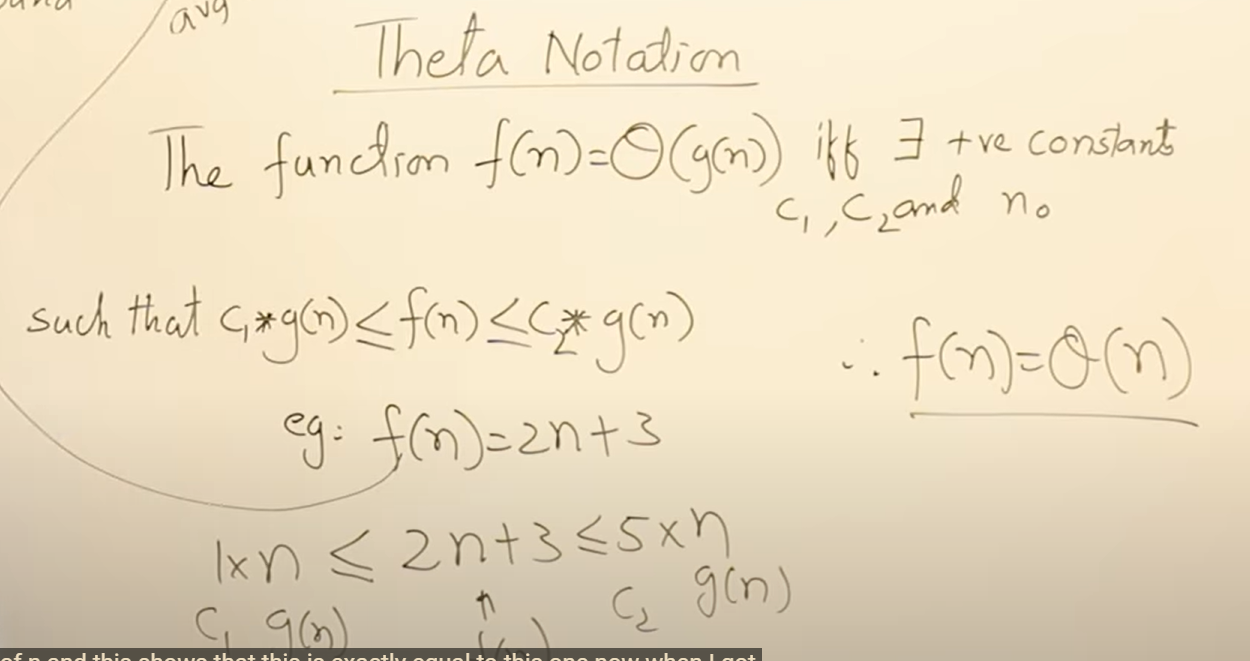 avg
Theta Notation
The function f(n)=Θ(g(n)) iff ∃ +ve constants
c₁, c₂ and n₀
such that c₁*g(n)≤f(n)≤c₂*g(n)
∴ f(n)=Θ(n)
eg: f(n)=2n+3
1×n ≤ 2n+3 ≤ 5×n
c₁ g(n) c₂ g(n)
of n and this shows that this is exactly equal to this one now when I get